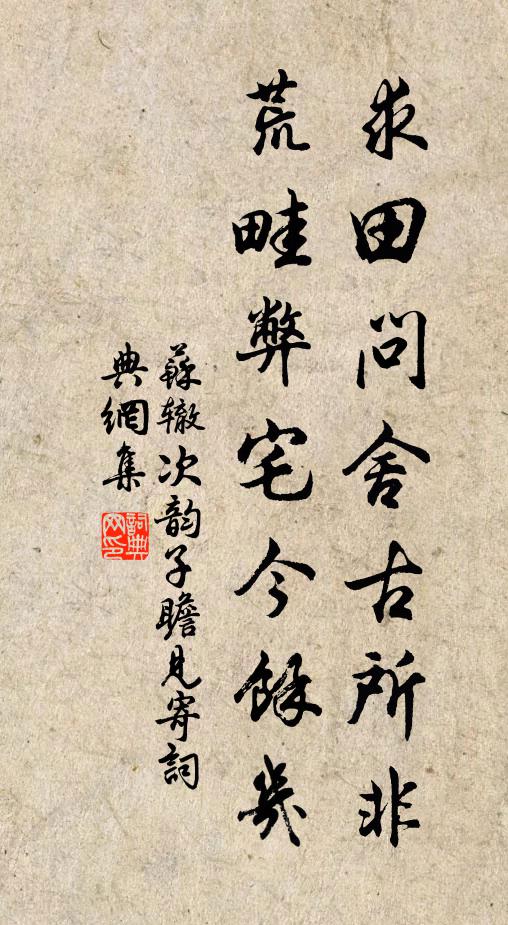 求田問舍古所非
荒畦弊宅今餘幾
蘇辙次韵子瞻見寄詞
典網集
詞典网印